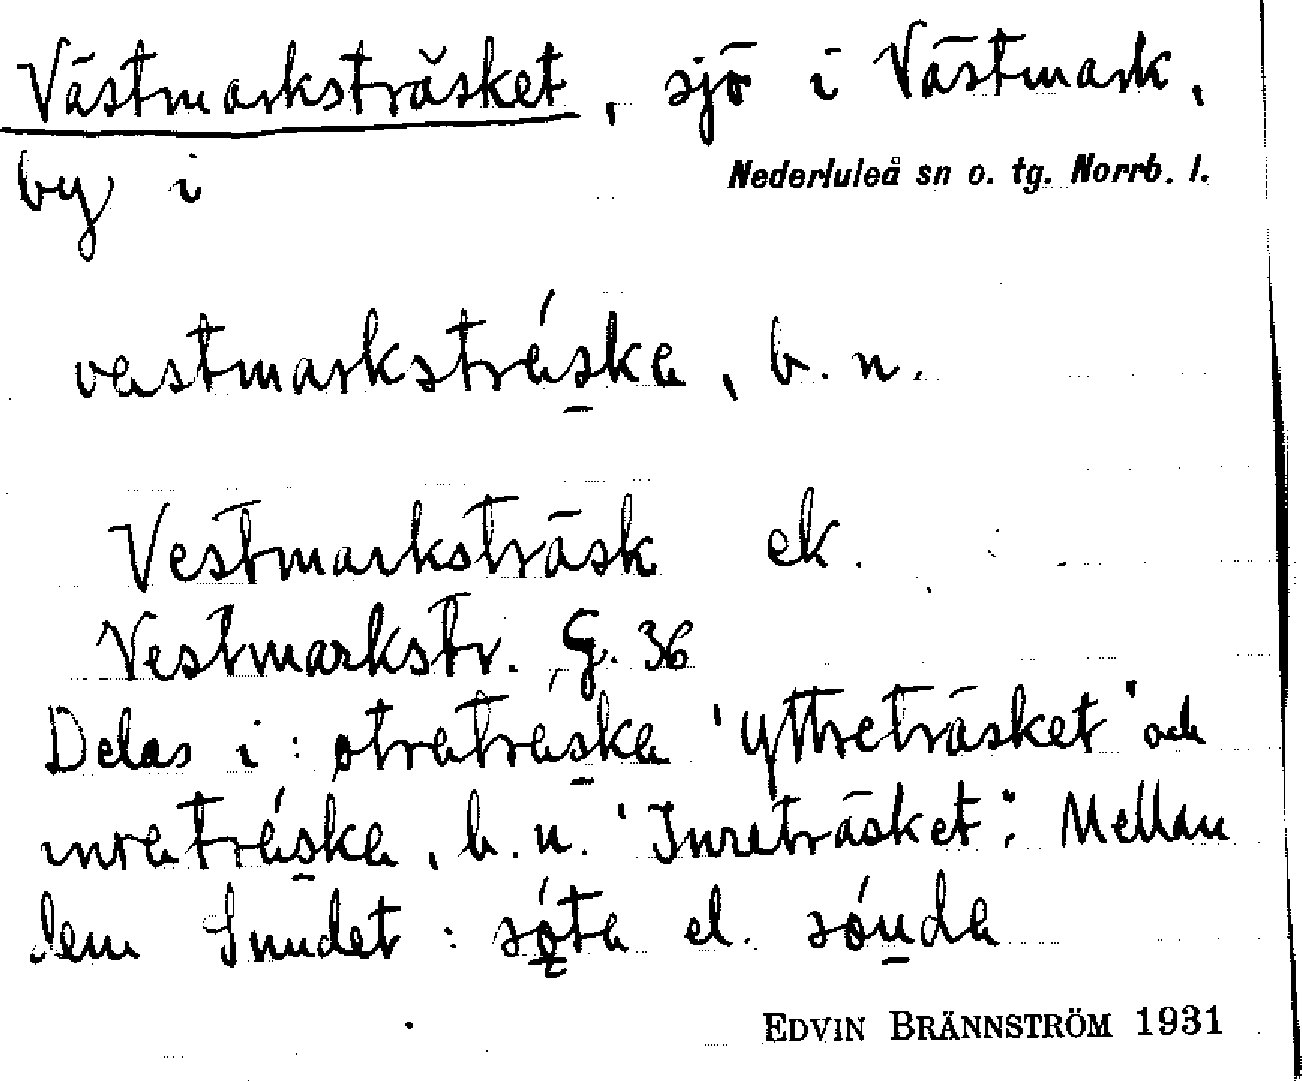 Västmarksträsket, sjö i Västmark,
by i Nederluleå sn o. tg. Norrb. l.
vestmarkstréska, b. n.
Vestmarksträsk ek.
Vestmarkstr. G. 36
Delas i: otratréska 'Yttreträsket' och
inratréska, b. n. 'Inreträsket'. Mellan
dem Sundet: sǫ́ta el. sónda
EDVIN BRÄNNSTRÖM 1931